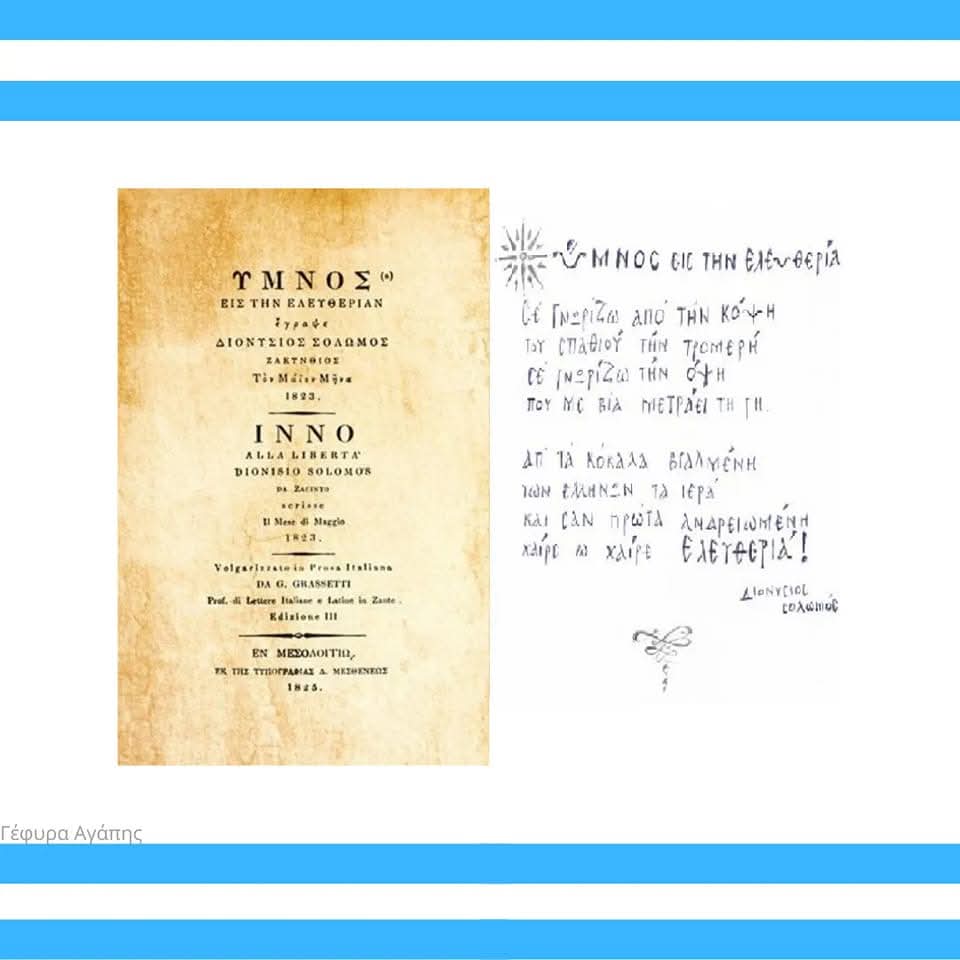 ΥΜΝΟΣ (*)
ΕΙΣ ΤΗΝ ΕΛΕΥΘΕΡΙΑΝ
ἔγραψε
ΔΙΟΝΥΣΙΟΣ ΣΟΛΩΜΟΣ
ΖΑΚΥΝΘΙΟΣ
Τὸν Μάϊον Μῆνα
1823.
INNO
ALLA LIBERTA'
DIONISIO SOLOMÓS
DA ZACINTO
scrisse
Il Mese di Maggio
1823.
Volgarizzato in Prosa Italiana
DA G. GRASSETTI
Prof. di Lettere Italiane e Latine in Zante.
Edizione III
ΕΝ ΜΕΣΟΛΟΓΓΙΩ,
ΕΚ ΤΗΣ ΤΥΠΟΓΡΑΦΙΑΣ Δ. ΜΕΣΘΕΝΕΩΣ
1825.
ὝΜΝΟΣ ΕΙΣ ΤΗΝ ΕΛΕΥΘΕΡΊΑ
ΣΈ ΓΝΩΡΊΖΩ ΑΠΌ ΤΉΝ ΚΌΨΗ
ΤΟΥ ΣΠΑΘΙΟΎ ΤΉΝ ΤΡΟΜΕΡΉ
ΣΈ ΓΝΩΡΊΖΩ ΤΉΝ ΌΨΗ
ΠΟΥ ΜΕ ΒΊΑ ΜΕΤΡΆΕΙ ΤΗ ΓΗ.
ΑΠ' ΤΆ ΚΌΚΑΛΑ ΒΓΑΛΜΈΝΗ
ΤΩΝ ΕΛΛΉΝΩΝ ΤΑ ΙΕΡΆ
ΚΑΙ ΣΑΝ ΠΡΏΤΑ ΑΝΔΡΕΙΩΜΈΝΗ
ΧΑΊΡΕ Ω ΧΑΊΡΕ ΕΛΕΥΘΕΡΙΆ!
ΔΙΟΝΥΣΙΟΣ
ΣΟΛΩΜΌΣ
Γέφυρα Αγάπης